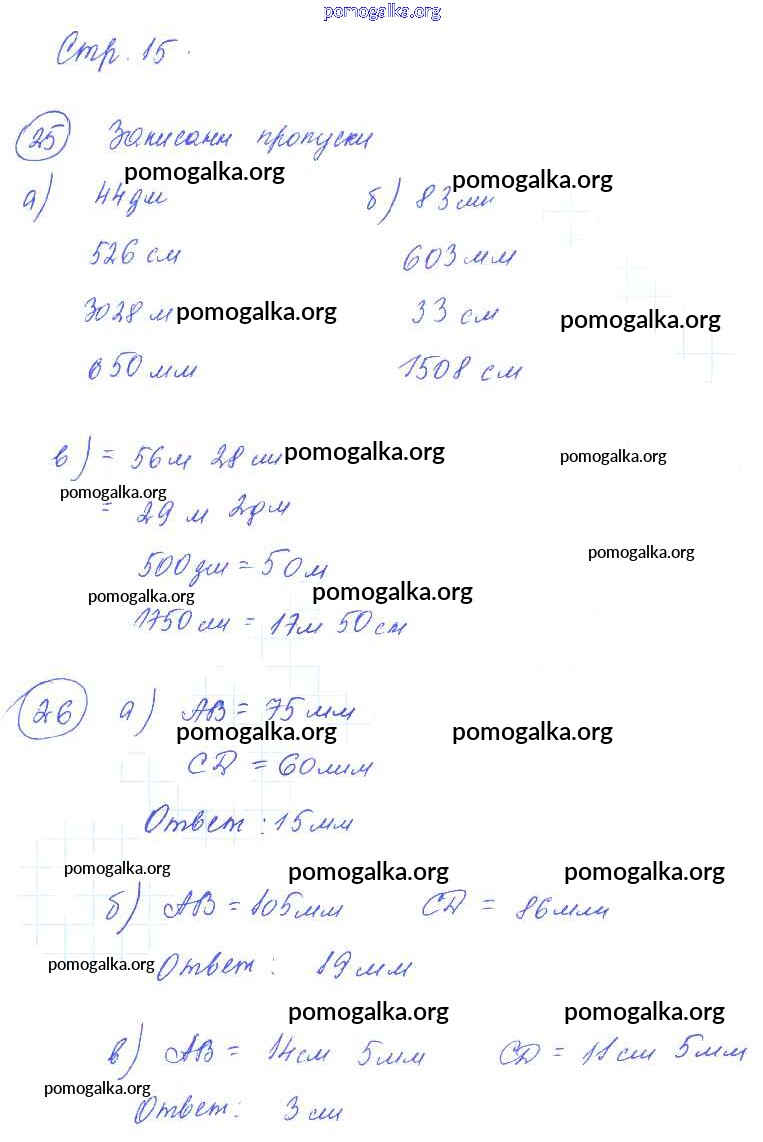 pomogalka.org
Стр. 15.
25 Записани пропуски
pomogalka.org pomogalka.org
а) 44дм б) 83мм
526 см 603 мм
3028 м pomogalka.org 33 см pomogalka.org
650 мм 1508 см
в) = 56м 28 см pomogalka.org pomogalka.org
pomogalka.org
= 29 м 2дм
pomogalka.org
500дм = 50м
pomogalka.org pomogalka.org
1750см = 17м 50см
26 а) АВ = 75мм
pomogalka.org pomogalka.org
CD = 60мм
Ответ: 15мм
pomogalka.org pomogalka.org pomogalka.org
б) АВ = 105мм CD = 86мм
pomogalka.org Ответ: 19мм
pomogalka.org pomogalka.org
в) АВ = 14см 5мм CD = 11см 5мм
pomogalka.org
Ответ: 3см